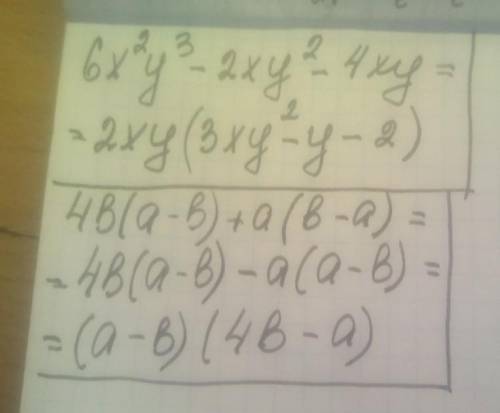 6x²y³ - 2xy² - 4xy =
= 2xy(3xy² - y - 2)
4в(а-в)+а(в-а) =
= 4в(а-в) - а(а-в) =
= (а-в)(4в-а)